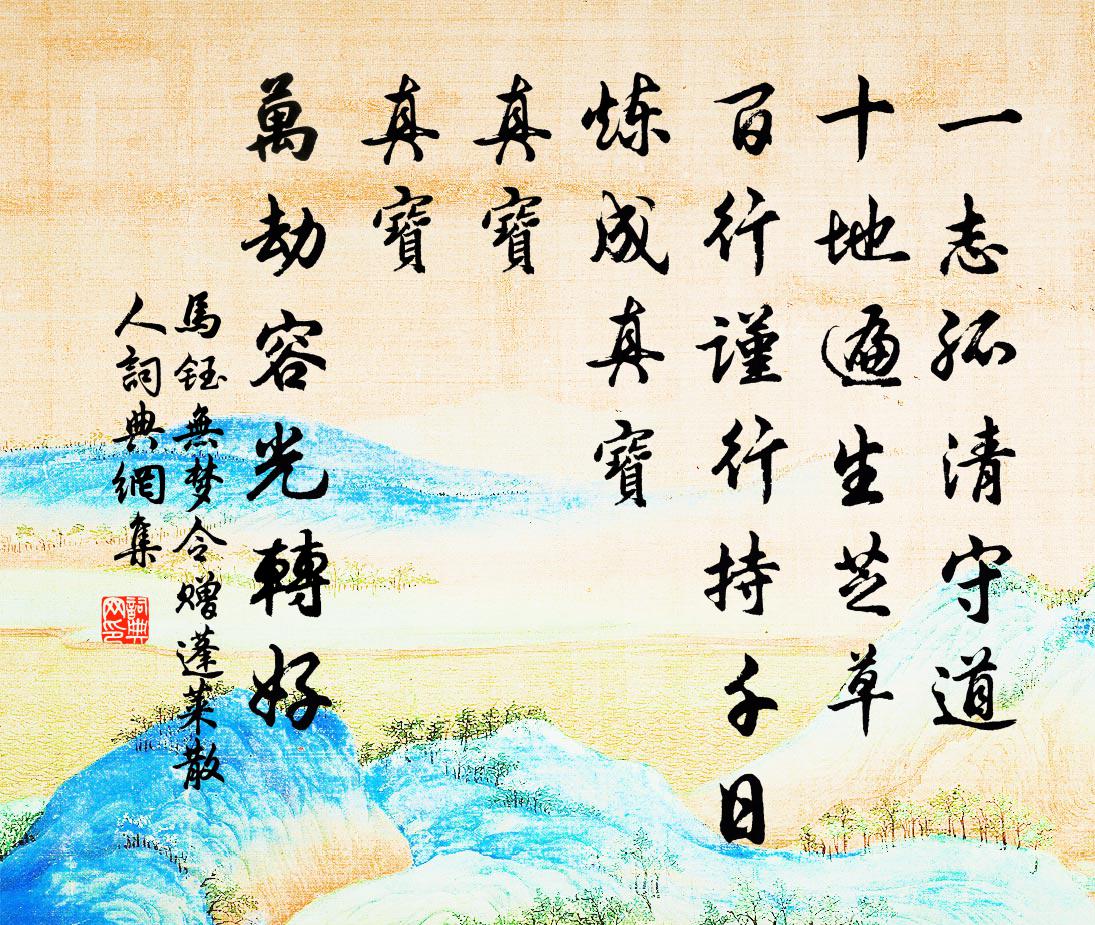 一志孤清守道
十地遍生芝草
百行谨行持千日
炼成真寶
真寶
真寶
萬劫容光轉好
馬鈺無梦令赠蓬莱散
人詞典網集
詞典
网印